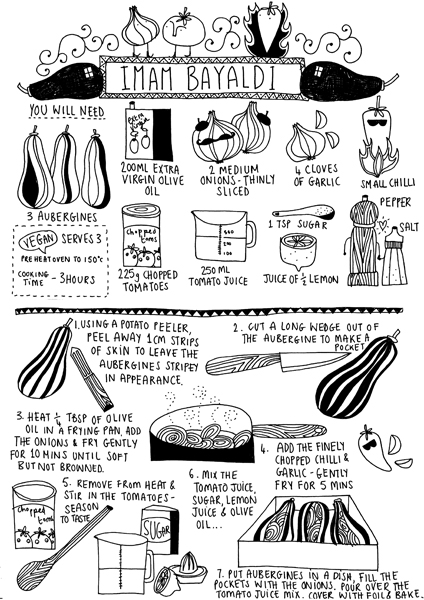 IMAM BAYALDI
YOU WILL NEED
3 AUBERGINES
200ML EXTRA
VIRGIN OLIVE
OIL
2 MEDIUM
ONIONS - THINLY
SLICED
4 CLOVES
OF GARLIC
SMALL CHILLI
VEGAN SERVES 3
PRE HEAT OVEN TO 150°C
COOKING
TIME - 3 HOURS
chopped
toms
225g CHOPPED
TOMATOES
250 ML
TOMATO JUICE
1 TSP SUGAR
JUICE OF ½ LEMON
PEPPER
SALT
1. USING A POTATO PEELER,
PEEL AWAY 1CM STRIPS
OF SKIN TO LEAVE THE
AUBERGINES STRIPEY
IN APPEARANCE.
2. CUT A LONG WEDGE OUT OF
THE AUBERGINE TO MAKE A
POCKET
3. HEAT ¼ TBSP OF OLIVE
OIL IN A FRYING PAN, ADD
THE ONIONS & FRY GENTLY
FOR 10 MINS UNTIL SOFT
BUT NOT BROWNED.
4. ADD THE FINELY
CHOPPED CHILLI &
GARLIC - GENTLY
FRY FOR 5 MINS
5. REMOVE FROM HEAT &
STIR IN THE TOMATOES -
SEASON
TO TASTE
chopped
toms
SUGAR
6. MIX THE
TOMATO JUICE,
SUGAR, LEMON
JUICE & OLIVE
OIL...
7. PUT AUBERGINES IN A DISH, FILL THE
POCKETS WITH THE ONIONS. POUR OVER THE
TOMATO JUICE MIX. COVER WITH FOIL & BAKE.